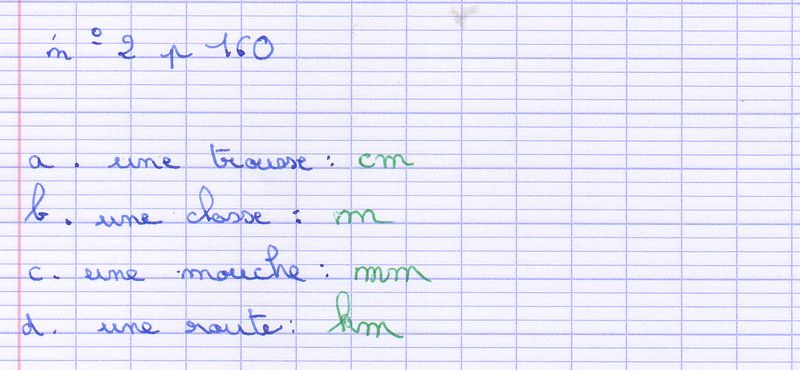 n° 2 p 160
a. une trousse : cm
b. une classe : m
c. une mouche : mm
d. une route : km